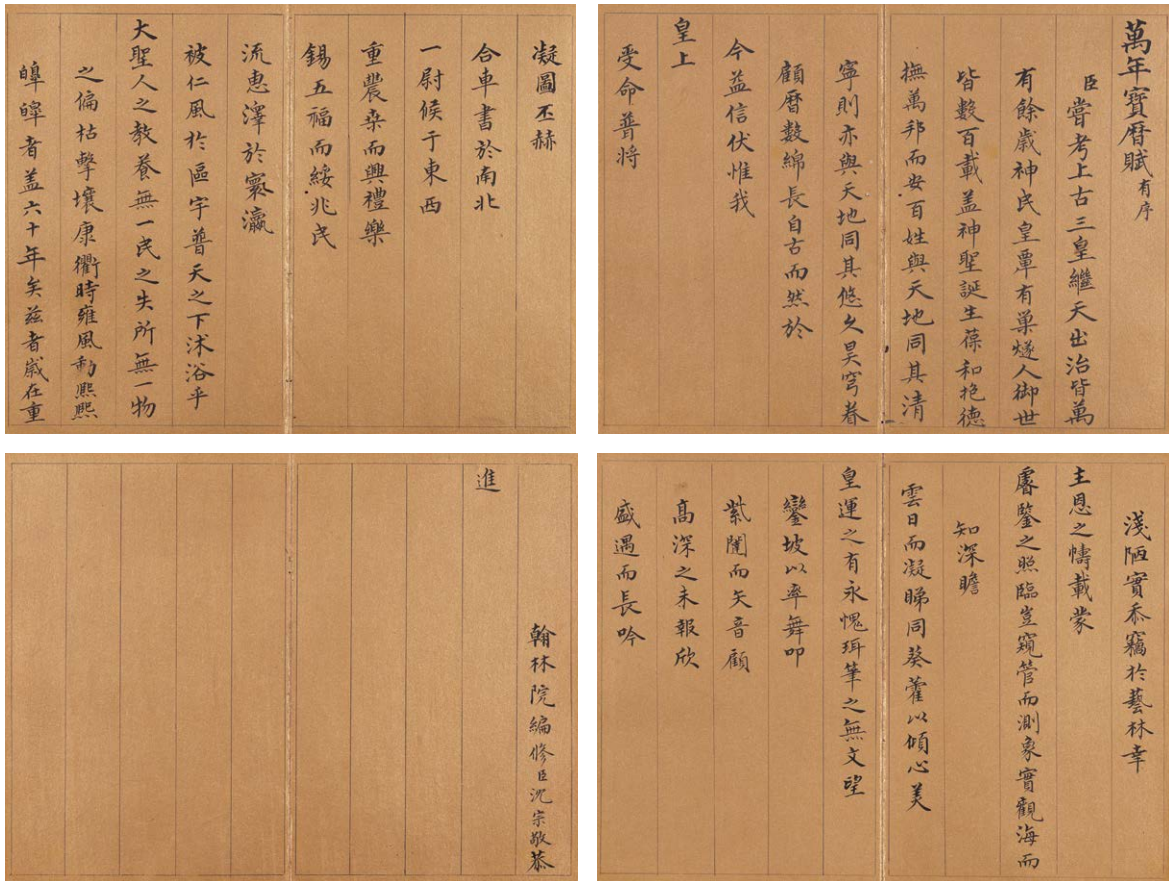 萬年寶曆賦有序
臣嘗考上古三皇繼天出治皆萬
有餘歲神民皇覃有巢燧人御世
皆數百載盖神聖誕生葆和抱德
撫萬邦而安百姓與天地同其清
寧則亦與天地同其悠久昊穹眷
顧曆數綿長自古而然於
今益信伏惟我
皇上
受命普将
凝圖丕赫
合車書於南北
一尉候于東西
重農桒而興禮樂
錫五福而綏兆民
流惠澤於寰瀛
被仁風於區宇普天之下沐浴乎
大聖人之教養無一民之失所無一物
之偏枯擊壤康衢時雍風動熈熈
皞皞者盖六十年矣兹者歲在重
淺陋實忝竊於藝林幸
主恩之幬載蒙
睿鑒之照臨豈窺管而測象實觀海而
知深瞻
雲日而凝睇同葵藿以傾心美
皇運之有永愧珥筆之無文望
鑾坡以率舞叩
紫闥而矢音顧
高深之未報欣
盛遇而長吟
翰林院編修臣沈宗敬恭
進